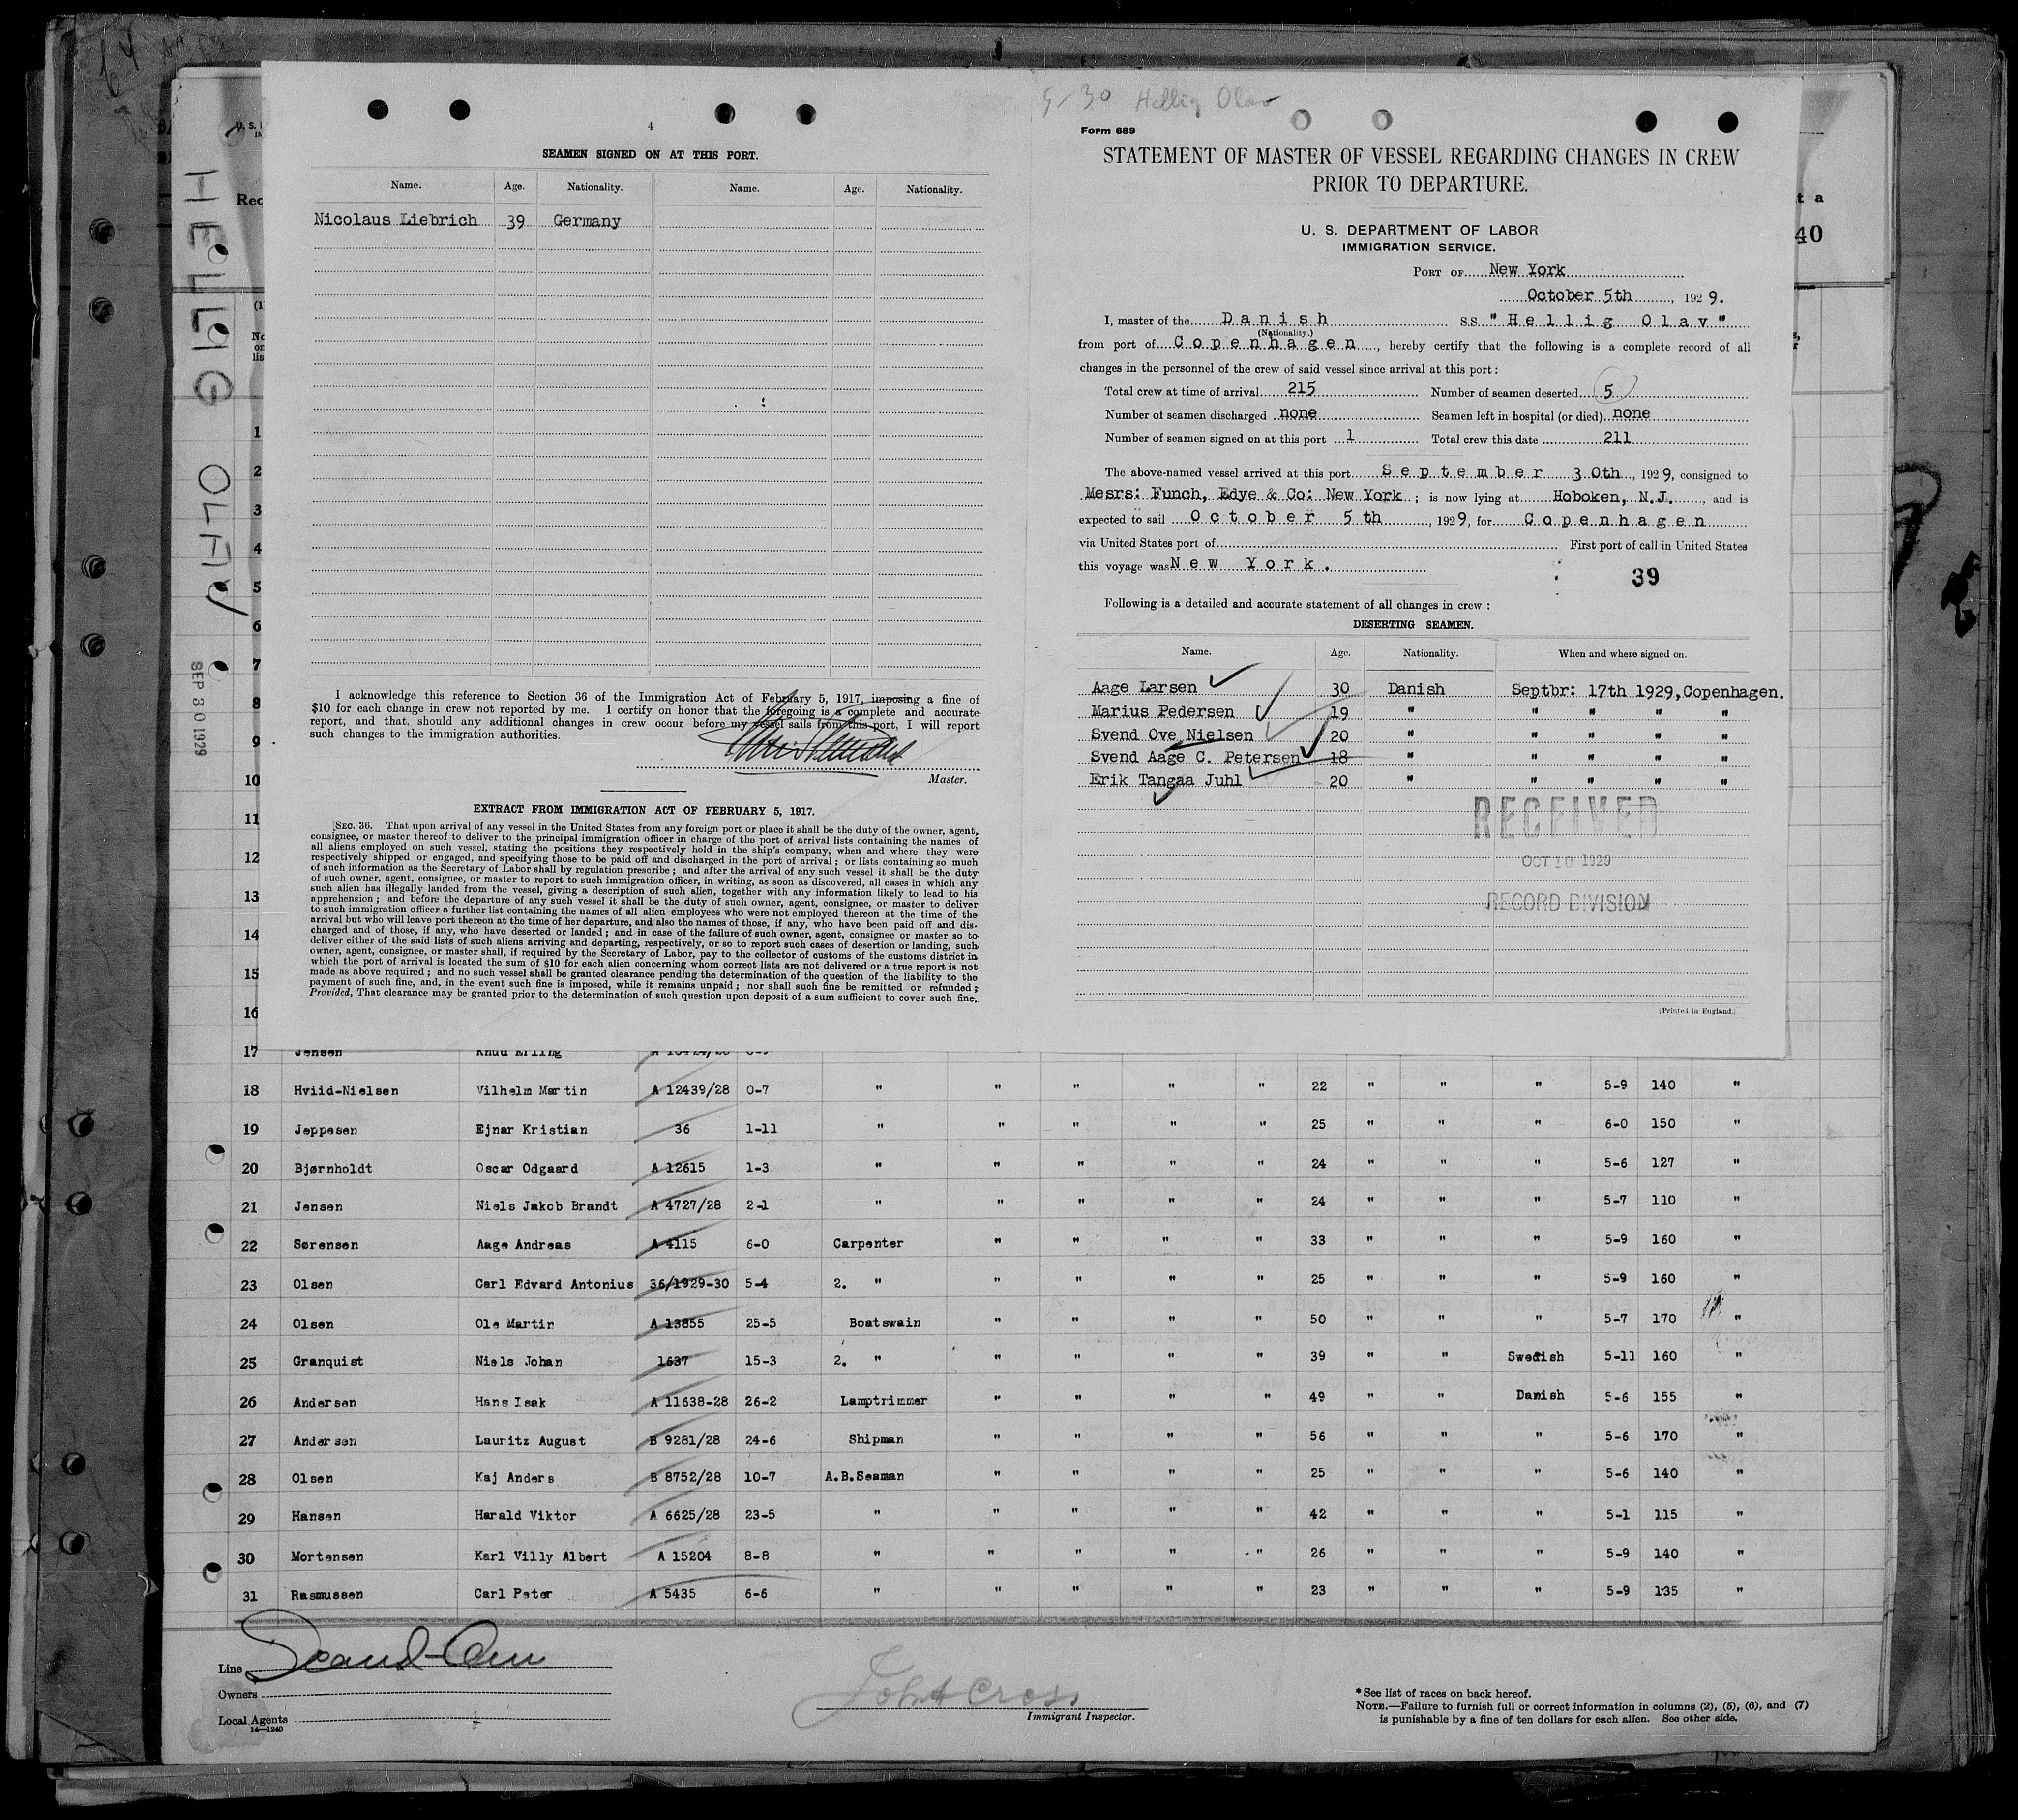 5-30 Hellig Olav
4
SEAMEN SIGNED ON AT THIS PORT.
Name. Age. Nationality. Name. Age. Nationality.
Nicolaus Liebrich 39 Germany
I acknowledge this reference to Section 36 of the Immigration Act of February 5, 1917, imposing a fine of
$10 for each change in crew not reported by me. I certify on honor that the foregoing is a complete and accurate
report, and that, should any additional changes in crew occur before my vessel sails from this port, I will report
such changes to the immigration authorities.
Master.
EXTRACT FROM IMMIGRATION ACT OF FEBRUARY 5, 1917.
SEC. 36. That upon arrival of any vessel in the United States from any foreign port or place it shall be the duty of the owner, agent,
consignee, or master thereof to deliver to the principal immigration officer in charge of the port of arrival lists containing the names of
all aliens employed on such vessel, stating the positions they respectively hold in the ship's company, when and where they were
respectively shipped or engaged, and specifying those to be paid off and discharged in the port of arrival; or lists containing so much
of such information as the Secretary of Labor shall by regulation prescribe; and after the arrival of any such vessel it shall be the duty
of such owner, agent, consignee, or master to report to such immigration officer, in writing, as soon as discovered, all cases in which any
such alien has illegally landed from the vessel, giving a description of such alien, together with any information likely to lead to his
apprehension; and before the departure of any such vessel it shall be the duty of such owner, agent, consignee, or master to deliver
to such immigration officer a further list containing the names of all alien employees who were not employed thereon at the time of the
arrival but who will leave port thereon at the time of her departure, and also the names of those, if any, who have been paid off and dis-
charged and of those, if any, who have deserted or landed; and in case of the failure of such owner, agent, consignee or master so to
deliver either of the said lists of such aliens arriving and departing, respectively, or so to report such cases of desertion or landing, such
owner, agent, consignee, or master shall, if required by the Secretary of Labor, pay to the collector of customs of the customs district in
which the port of arrival is located the sum of $10 for each alien concerning whom correct lists are not delivered or a true report is not
made as above required; and no such vessel shall be granted clearance pending the determination of the question of the liability to the
payment of such fine, and, in the event such fine is imposed, while it remains unpaid; nor shall such fine be remitted or refunded;
Provided, That clearance may be granted prior to the determination of such question upon deposit of a sum sufficient to cover such fine.
Form 689
STATEMENT OF MASTER OF VESSEL REGARDING CHANGES IN CREW
PRIOR TO DEPARTURE.
U. S. DEPARTMENT OF LABOR
IMMIGRATION SERVICE.
PORT OF New York
October 5th, 1929.
I, master of the Danish S.S. "Hellig Olav"
(Nationality.)
from port of Copenhagen, hereby certify that the following is a complete record of all
changes in the personnel of the crew of said vessel since arrival at this port:
Total crew at time of arrival 215 Number of seamen deserted 5
Number of seamen discharged none Seamen left in hospital (or died) none
Number of seamen signed on at this port 1 Total crew this date 211
The above-named vessel arrived at this port September 30th, 1929, consigned to
Mesrs: Funch, Edye & Co: New York; is now lying at Hoboken, N.J., and is
expected to sail October 5th, 1929, for Copenhagen
via United States port of First port of call in United States
this voyage was New York.
39
Following is a detailed and accurate statement of all changes in crew:
DESERTING SEAMEN.
Name. Age. Nationality. When and where signed on.
Aage Larsen 30 Danish Septbr: 17th 1929, Copenhagen.
Marius Pedersen 19 " " " " "
Svend Ove Nielsen 20 " " " " "
Svend Aage C. Petersen 18 " " " " "
Erik Tangaa Juhl 20 " " " " "
RECEIVED
OCT 10 1929
RECORD DIVISION
(Printed in England.)
HELLIG OLAV
SEP 30 1929
U. S.
Rec
t a
40
(1)
No
on
lis
1
2
3
4
5
6
7
8
9
10
11
12
13
14
15
16
17 Jensen Knud Erling
18 Hviid-Nielsen Vilhelm Martin A 12439/28 0-7 " " " " " 22 " " " 5-9 140 "
19 Jeppesen Ejnar Kristian 36 1-11 " " " " " 25 " " " 6-0 150 "
20 Bjørnholdt Oscar Odgaard A 12615 1-3 " " " " " 24 " " " 5-6 127 "
21 Jensen Niels Jakob Brandt A 4727/28 2-1 " " " " " 24 " " " 5-7 110 "
22 Sørensen Aage Andreas A 4115 6-0 Carpenter " " " " 33 " " " 5-9 160 "
23 Olsen Carl Edvard Antonius 36/1929-30 5-4 2. " " " " " 25 " " " 5-9 160 "
24 Olsen Ole Martin A 13855 25-5 Boatswain " " " " 50 " " " 5-7 170 "
25 Granquist Niels Johan 1637 15-3 2. " " " " " 39 " " Swedish 5-11 160 "
26 Andersen Hans Isak A 11638-28 26-2 Lamptrimmer " " " " 49 " " Danish 5-6 155 "
27 Andersen Lauritz August B 9281/28 24-6 Shipman " " " " 56 " " " 5-6 170 "
28 Olsen Kaj Anders B 8752/28 10-7 A.B.Seaman " " " " 25 " " " 5-6 140 "
29 Hansen Harald Viktor A 6625/28 23-5 " " " " " 42 " " " 5-1 115 "
30 Mortensen Karl Villy Albert A 15204 8-8 " " " " " 26 " " " 5-9 140 "
31 Rasmussen Carl Peter A 5435 6-6 " " " " " 23 " " " 5-9 135 "
Line Scand-Am
Owners
Local Agents
14-1240
John Cross
Immigrant Inspector.
* See list of races on back hereof.
NOTE.—Failure to furnish full or correct information in columns (2), (5), (6), and (7)
is punishable by a fine of ten dollars for each alien. See other side.